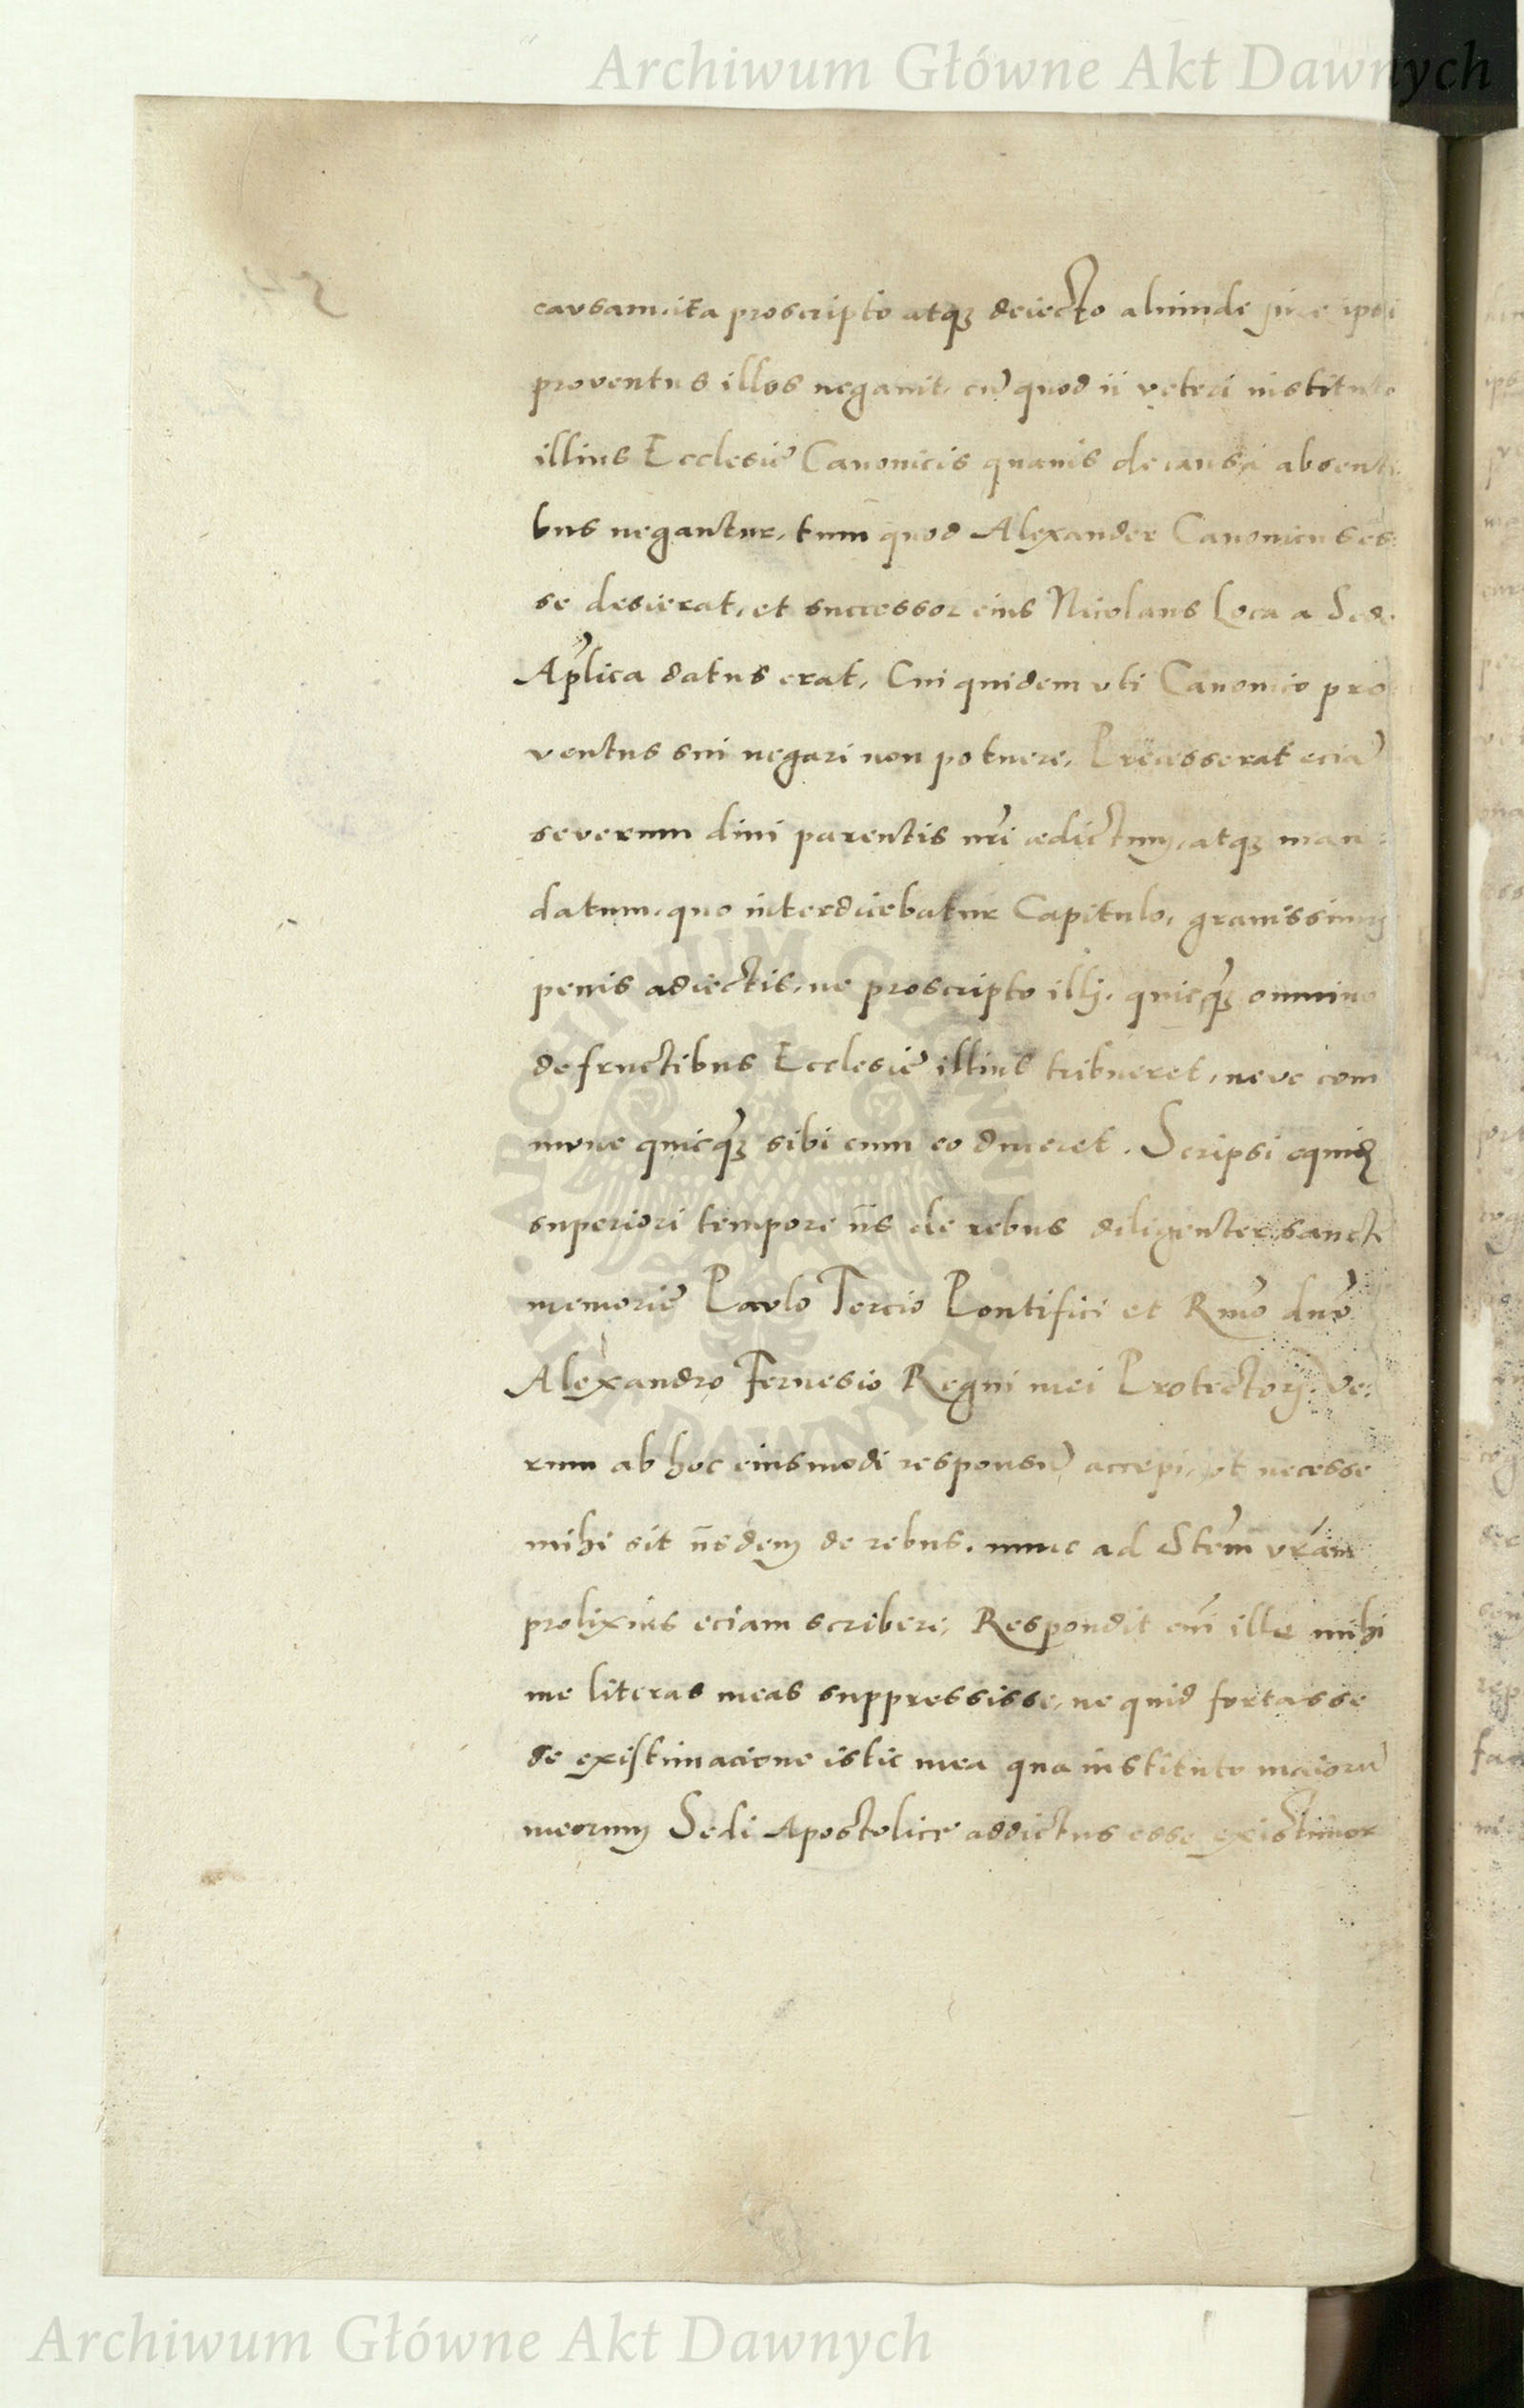 Archiwum Główne Akt Dawnych
causam, ita proscripto atq3 deiecto aliunde iure ipsi
proventus illos negavit, cũ quod ii veteri instituto
illius Ecclesię Canonicis quavis de causa absenti
bus negantur, tum quod Alexander Canonicus es:
se desierat, et successor eius Nicolaus Loca a Sede
Aplica datus erat, Cui quidem uti Canonico pro
ventus sui negari non potuere, Precesserat eciã
severum divi parentis nri ędictum, atq3 man:
datum, quo interdicebatur Capitulo, gravissimis
penis adiectis, ne proscripto illj, quicq3 omnino
de fructibus Ecclesię illius tribueret, neve com
mune quicq3 sibi cum eo duceret. Scripsi equid
superiori tempore iis de rebus diligenter, sancte
memorię Paulo Tercio Pontifici et Rmo dno
Alexandro Fernesio Regni mei Protectorj. Ve:
rum ab hoc eiusmodi responsũ accepi, ut necesse
mihi sit iisdem de rebus, nunc ad Stem vram
prolixius eciam scribere, Respondit eni ille mihi
me literas meas suppressisse, ne quid fortasse
de existimacione istic mea qua instituto maiorũ
meorum Sedi Apostolicę addictus esse existimor
ARCHIWUM GŁÓWNE AKT DAWNYCH
Archiwum Główne Akt Dawnych